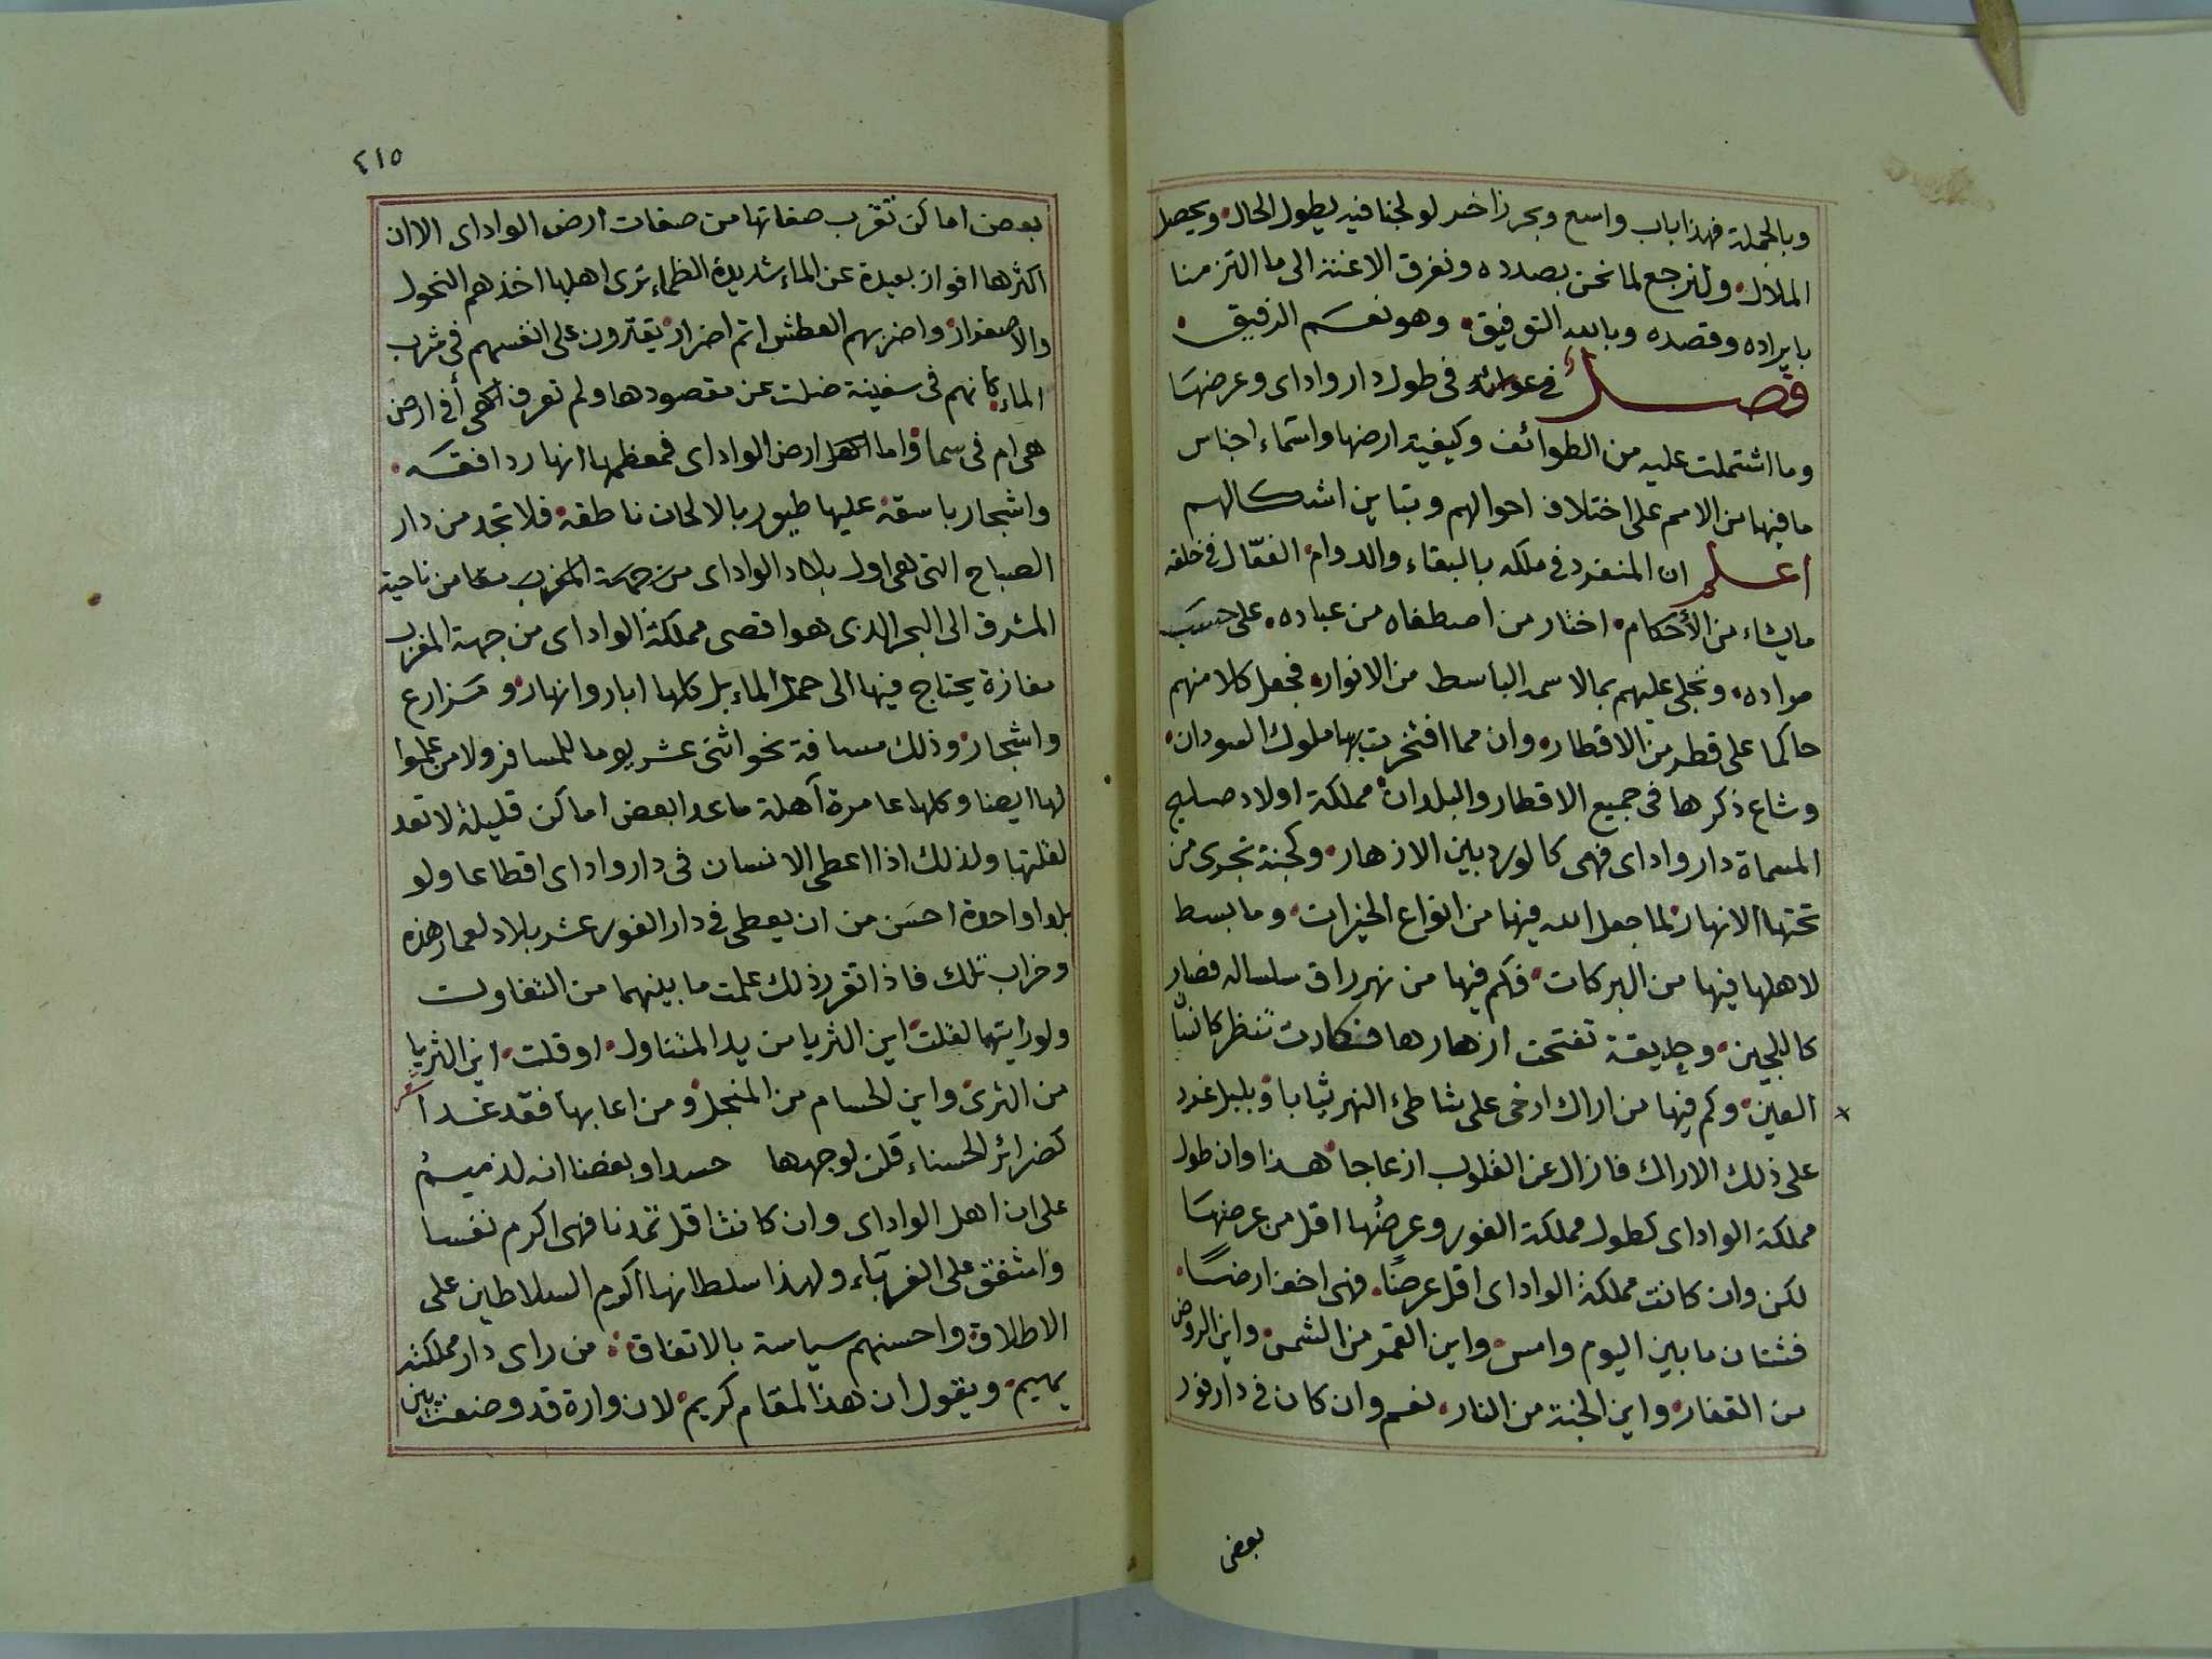 وبالجملة فهذا باب واسع وبحر زاخر لو لججنا فيه يطول الحال ويحصل
الملال ولنرجع لما نحن بصدده ونغرق الاعنة الى ما التزمنا
بايراده وقصده وبالله التوفيق وهو نعم الرفيق
فصل في عوائد في طول دار واداى وعرضها
وما اشتملت عليه من الطوائف وكيفية ارضها واسماء اجناس
ما فيها من الامم على اختلاف احوالهم وتباين اشكالهم
اعلم ان المنفرد في ملكه بالبقاء والدوام الفعّال في خلقه
ما يشاء من الأحكام اختار من اصطفاه من عباده على حسب
مراده وتجلى عليهم بما لاسمه الباسط من الانوار فجعل كلا منهم
حاكما على قطر من الاقطار وان مما افتخرت بها ملوك السودان
وشاع ذكرها في جميع الاقطار والبلدان مملكة اولاد صليح
المسماة دار واداى فهى كالورد بين الازهار وكجنة تجرى من
تحتها الانهار لما جعل الله فيها من انواع الخيرات وما بسط
لاهلها فيها من البركات فكم فيها من نهر راق سلساله فصار
كاللجين وحديقة تفتحت ازهارها فكادت تنظر كانها
العين وكم فيها من اراك ارخى على شاطئ النهر ثيابا وبلبل غرد
على ذلك الاراك فازال عن القلوب ازعاجا هذا وان طول
مملكة الواداى كطول مملكة الفور وعرضُها اقل من عرضها
لكن وان كانت مملكة الواداى اقل عرضًا فهى اخف ارضًا
فشتان ما بين اليوم وامس واين القمر من الشمس واين الروض
من القفار واين الجنة من النار نعم وان كان في دار فور
بعض
٤١٥
بعض اماكن تقرب صفاتها من صفات ارض الواداى الا ان
اكثرها افواز بعيدة عن الماء شديدة الظماء ترى اهلها اخذهم النحول
والاصفرار واضر بهم العطش اتم اضرار يقترون على انفسهم في شرب
الماء كانهم في سفينة ضلت عن مقصودها ولم تعرف أفي ارض
هى ام في سما واما ارض الواداى فمعظمها انهار دافقه
واشجار باسقه عليها طيور بالالحان ناطقه فلا تجد من دار
الصباح التى هى اول بلاد الواداى من ناحية
المشرق الى البحر الذى هو اقصى مملكة الواداى من جهة المغرب
مفازة يحتاج فيها الى حمل الماء بل كلها ابار وانهار ومزارع
واشجار وذلك مسافة نحو اثنى عشر يوما للمسافر
لها ايضا وكلها عامرة آهلة ما عدا بعض اماكن قليلة لا تعد
لقلتها ولذلك اذا اعطى الانسان في دار واداى اقطاعا ولو
بلدا واحدة احسن من ان يعطى في دار الفور عشر بلاد لعمار هذه
وخراب تلك فاذا تقرر ذلك علمت ما بينهما من التفاوت
ولو رايتهما لقلت اين الثريا من يد المتناول او قلت اين الثريا
من الثرى واين الحسام من المنجل ومن اعابها فقد غدا
كضرائر الحسناء قلن لوجهها حسدا وبغضا انه لذميمُ
على ان اهل الواداى وان كانت اقل تمدنا فهى اكرم نفسا
واشفق على الغربآء ولهذا سلطانها اكرم السلاطين على
الاطلاق واحسنهم سياسة بالاتفاق من راى دار مملكته
يهيم ويقول ان هذا المقام كريم لان وارة قد وضعت بين